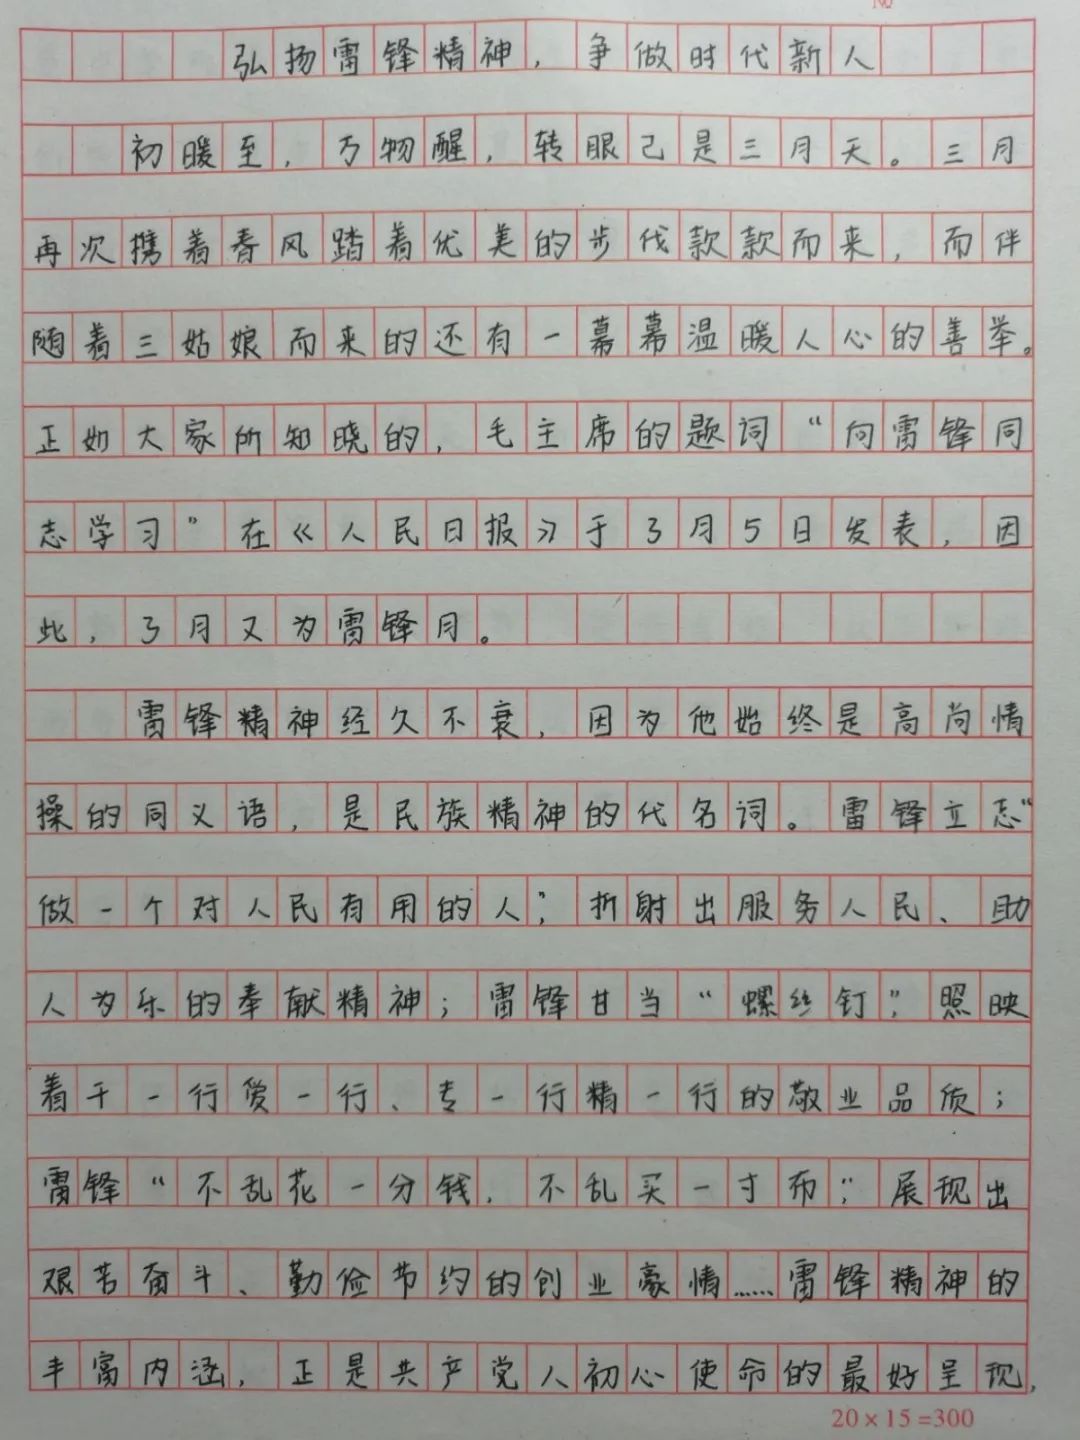 №
弘扬雷锋精神，争做时代新人
初暖至，万物醒，转眼已是三月天。三月
再次携着春风踏着优美的步伐款款而来，而伴
随着三姑娘而来的还有一幕幕温暖人心的善举。
正如大家所知晓的，毛主席的题词“向雷锋同
志学习”在《人民日报》于3月5日发表，因
此，3月又为雷锋月。
雷锋精神经久不衰，因为他始终是高尚情
操的同义语，是民族精神的代名词。雷锋立志“
做一个对人民有用的人”，折射出服务人民、助
人为乐的奉献精神；雷锋甘当“螺丝钉”，照映
着干一行爱一行、专一行精一行的敬业品质；
雷锋“不乱花一分钱，不乱买一寸布”，展现出
艰苦奋斗、勤俭节约的创业豪情……雷锋精神的
丰富内涵，正是共产党人初心使命的最好呈现，
20×15=300